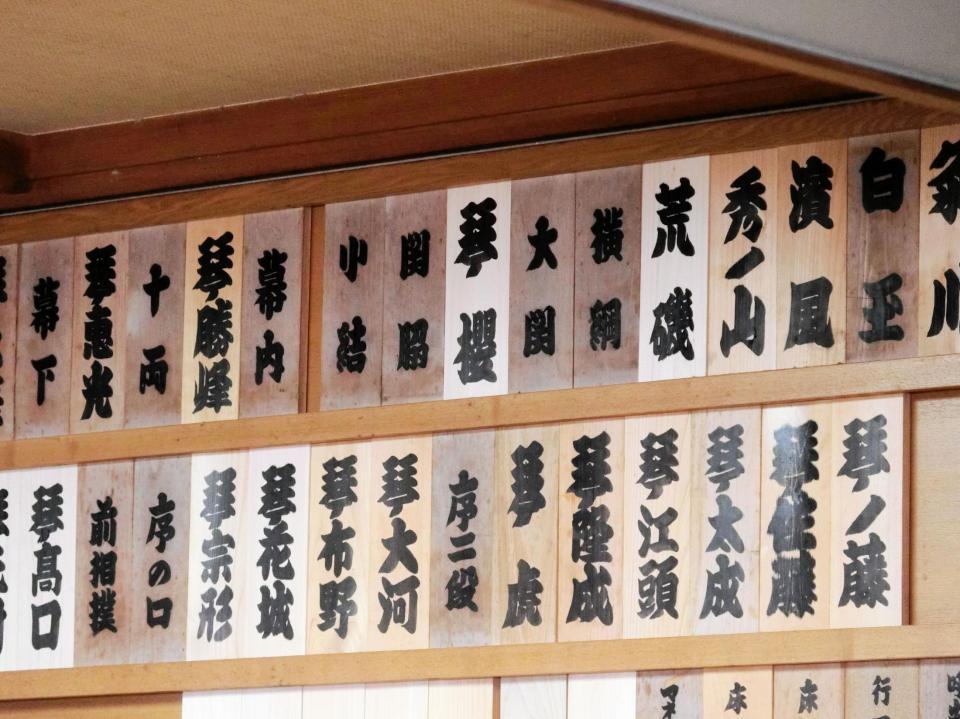 濱風
秀ノ山
荒磯
横綱
大関
琴櫻
関脇
小結
幕内
琴勝峰
十両
琴恵光
幕下
琴ノ藤
琴佐藤
琴太成
琴江頭
琴隆成
琴虎
序二段
琴大河
琴布野
琴花城
琴宗形
序の口
前相撲
琴髙口